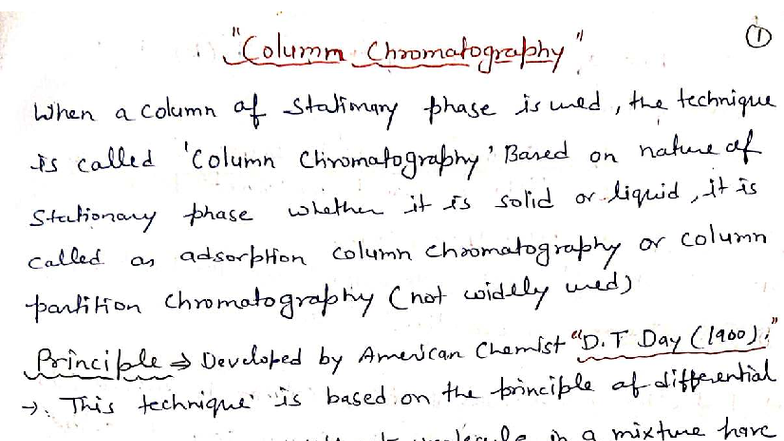 ①
"Column Chromatography"
When a column of stationary phase is used, the technique
is called 'Column Chromatography' Based on nature of
stationary phase whether it is solid or liquid, it is
called as adsorption column chromatography or column
partition chromatography (not widely used)
Principle ⇒ Developed by American Chemist "D.T Day (1900)."
→. This technique is based on the principle of differential
in a mixture have